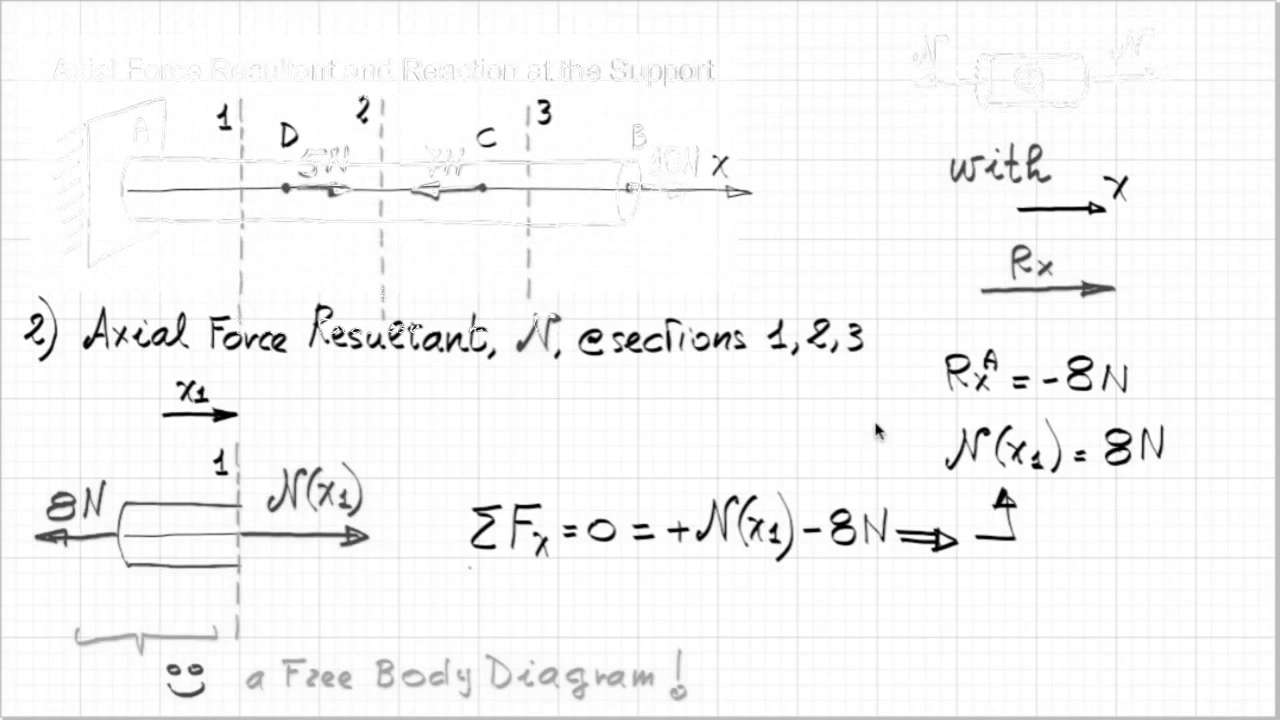 Axial Force Resultant and Reaction at the Support
N N
1 2 3
A D C B
5N 7N 10N x
with
x
Rx
2) Axial Force Resultant, N, @sections 1,2,3
RxA = -8N
x1
N(x1) = 8N
1
8N N(x1)
ΣFx = 0 = +N(x1) - 8N ⇒
a Free Body Diagram!